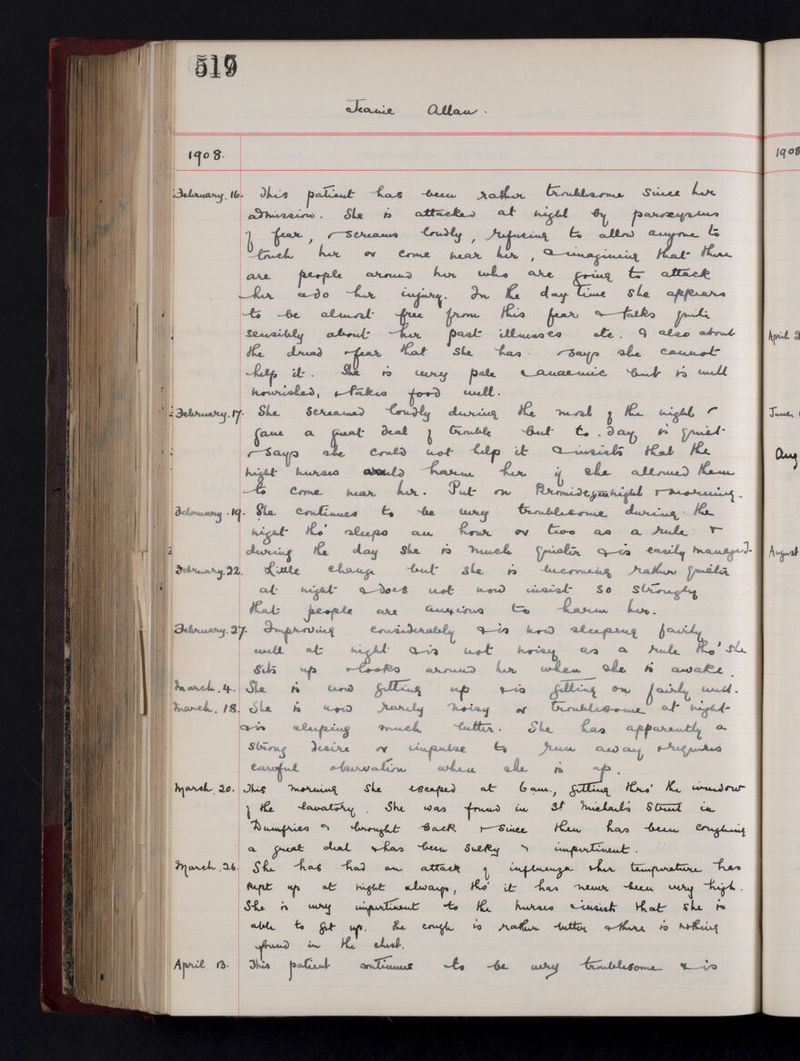 519
Jeanie Allan.
1908.
1908
February. 16. This patient has been rather troublesome since her
admission. She is attacked at night by paroxysms
of fear, & screams loudly, refusing to allow anyone to
touch her or come near her, & imagining that there
are people around her who are going to attack
her & do her injury. In the day time she appears
to be almost free from this fear & talks quite
sensibly about her past illnesses etc. & also about
the dread fear that she has. & says she cannot
help it. She is very pale & anaemic but is well
nourished, & takes food well.
February. 17. She screamed loudly during the most of the night &
gave a great deal of trouble but to.day is quiet
& says she could not help it & insists that the
night nurses would harm her if she allowed them
to come near her. Put on Bromide night & morning.
February. 19. She continues to be very troublesome during the
night tho' sleeps an hour or two as a rule &
during the day she is much quieter & is easily managed.
February. 22. Little change but she is becoming rather quieter
at night & does not now insist so strongly
that people are anxious to harm her.
February. 27. Improving considerably & is now sleeping fairly
well at night & is not noisy as a rule tho' she
sits up & looks around her when she is awake.
March. 4. She is now getting up & is getting on fairly well.
March. 18. She is now rarely noisy or troublesome at night
& is sleeping much better. She has apparently a
strong desire or impulse to run away & requires
careful observation when she is up.
March. 20. This morning she escaped at 6 am., getting thro' the window
of the lavatory. She was found in St Michael's Street in
Dumfries & brought back & since then has been coughing
a great deal & has been sulky & impertinent.
March. 26. She has had an attack of influenza & her temperature has
kept up at night always, tho' it has never been very high.
She is very impertinent to the nurses & insists that she is
able to get up. The cough is rather better & there is nothing
found in the chest.
April 13. This patient continues to be very troublesome & is
April
June
Aug
August